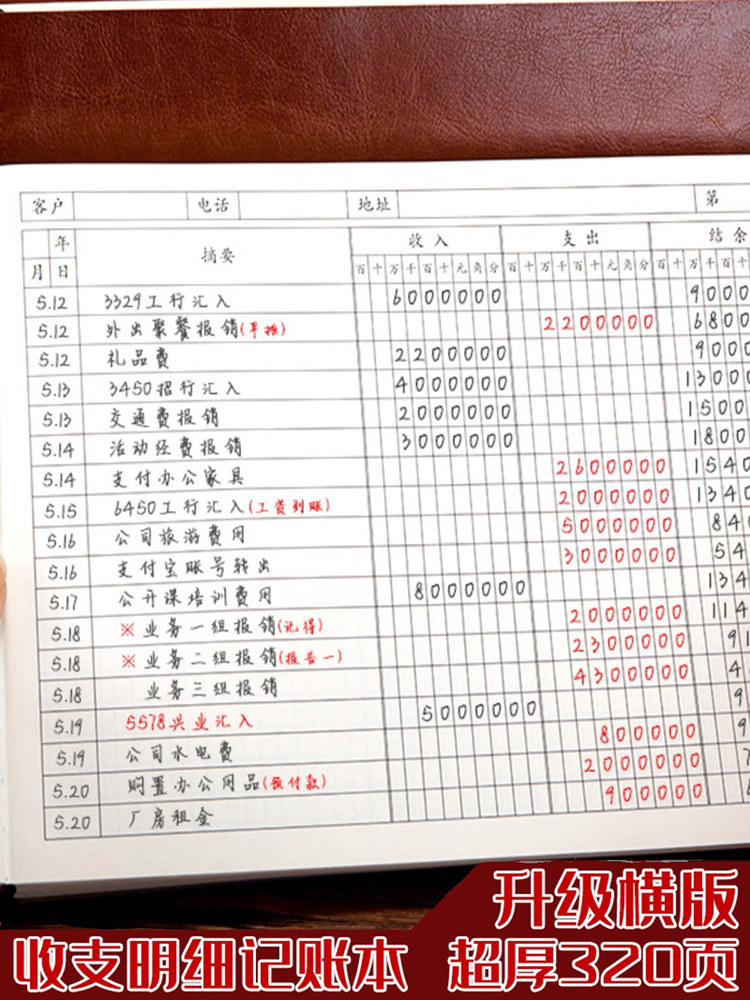 客户 电话 地址 第
年 摘要 收入 支出 结余
月 日 百 十 万 千 百 十 元 角 分 百 十 万 千 百 十 元 角 分 百 十 万 千 百
5.12 3329工行汇入 6000000 9000
5.12 外出聚餐报销 2200000 6800
5.12 礼品费 2200000 9000
5.13 3450招行汇入 4000000 13000
5.13 交通费报销 2000000 1500
5.14 活动经费报销 3000000 1800
5.14 支付办公家具 2600000 1540
5.15 6450工行汇入(工资到账) 2000000 1340
5.16 公司旅游费用 5000000 840
5.16 支付宝账号转出 3000000 54
5.17 公开课培训费用 8000000 134
5.18 ※业务一组报销(记得) 2000000 114
5.18 ※业务二组报销(报告一) 2300000 91
5.18 业务三组报销 4300000 4
5.19 5578兴业汇入 5000000 9
5.19 公司水电费 800000 9
5.20 购置办公用品(预付款) 2000000
5.20 厂房租金 900000
升级横版
收支明细记账本 超厚320页